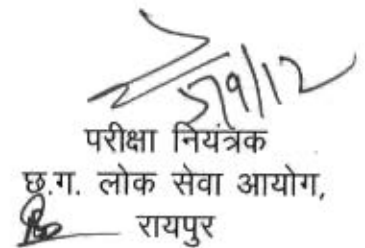 5/9/12
परीक्षा नियंत्रक
छ.ग. लोक सेवा आयोग,
रायपुर